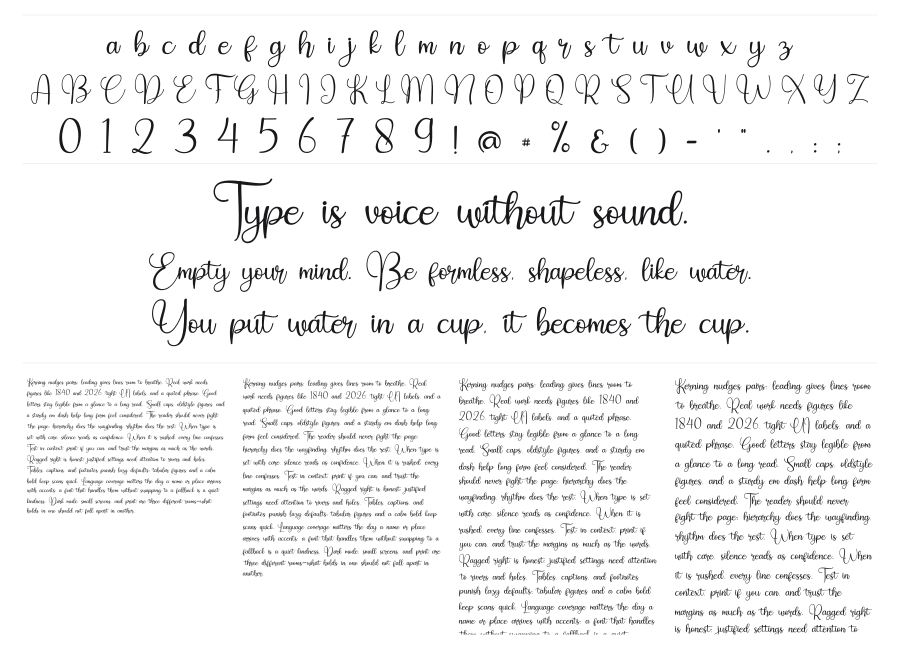 a b c d e f g h i j k l m n o p q r s t u v w x y z
A B C D E F G H I J K L M N O P Q R S T U V W X Y Z
0 1 2 3 4 5 6 7 8 9 ! @ # % & ( ) - ' " . , ; :
Type is voice without sound.
Empty your mind. Be formless, shapeless, like water.
You put water in a cup, it becomes the cup.
Kerning nudges pairs; leading gives lines room to breathe. Real work needs
figures like 1840 and 2026, tight UI labels, and a quoted phrase. Good
letters stay legible from a glance to a long read. Small caps, oldstyle figures, and
a sturdy em dash help long form feel considered. The reader should never fight
the page; hierarchy does the wayfinding, rhythm does the rest. When type is
set with care, silence reads as confidence. When it is rushed, every line confesses.
Test in context; print if you can, and trust the margins as much as the words.
Ragged right is honest; justified settings need attention to rivers and holes.
Tables, captions, and footnotes punish lazy defaults; tabular figures and a calm
bold keep scans quick. Language coverage matters the day a name or place arrives
with accents; a font that handles them without swapping to a fallback is a quiet
kindness. Dark mode, small screens, and print are three different rooms—what
holds in one should not fall apart in another.
Kerning nudges pairs; leading gives lines room to breathe. Real
work needs figures like 1840 and 2026, tight UI labels, and a
quoted phrase. Good letters stay legible from a glance to a long
read. Small caps, oldstyle figures, and a sturdy em dash help long
form feel considered. The reader should never fight the page;
hierarchy does the wayfinding, rhythm does the rest. When type is
set with care, silence reads as confidence. When it is rushed, every
line confesses. Test in context; print if you can, and trust the
margins as much as the words. Ragged right is honest; justified
settings need attention to rivers and holes. Tables, captions, and
footnotes punish lazy defaults; tabular figures and a calm bold keep
scans quick. Language coverage matters the day a name or place
arrives with accents; a font that handles them without swapping to a
fallback is a quiet kindness. Dark mode, small screens, and print are
three different rooms—what holds in one should not fall apart in
another.
Kerning nudges pairs; leading gives lines room to
breathe. Real work needs figures like 1840 and
2026, tight UI labels, and a quoted phrase.
Good letters stay legible from a glance to a long
read. Small caps, oldstyle figures, and a sturdy em
dash help long form feel considered. The reader
should never fight the page; hierarchy does the
wayfinding, rhythm does the rest. When type is set
with care, silence reads as confidence. When it is
rushed, every line confesses. Test in context; print if
you can, and trust the margins as much as the words.
Ragged right is honest; justified settings need attention
to rivers and holes. Tables, captions, and footnotes
punish lazy defaults; tabular figures and a calm bold
keep scans quick. Language coverage matters the day a
name or place arrives with accents; a font that handles
them without swapping to a fallback is a quiet
Kerning nudges pairs; leading gives lines room
to breathe. Real work needs figures like
1840 and 2026, tight UI labels, and a
quoted phrase. Good letters stay legible from
a glance to a long read. Small caps, oldstyle
figures, and a sturdy em dash help long form
feel considered. The reader should never
fight the page; hierarchy does the wayfinding,
rhythm does the rest. When type is set
with care, silence reads as confidence. When
it is rushed, every line confesses. Test in
context; print if you can, and trust the
margins as much as the words. Ragged right
is honest; justified settings need attention to